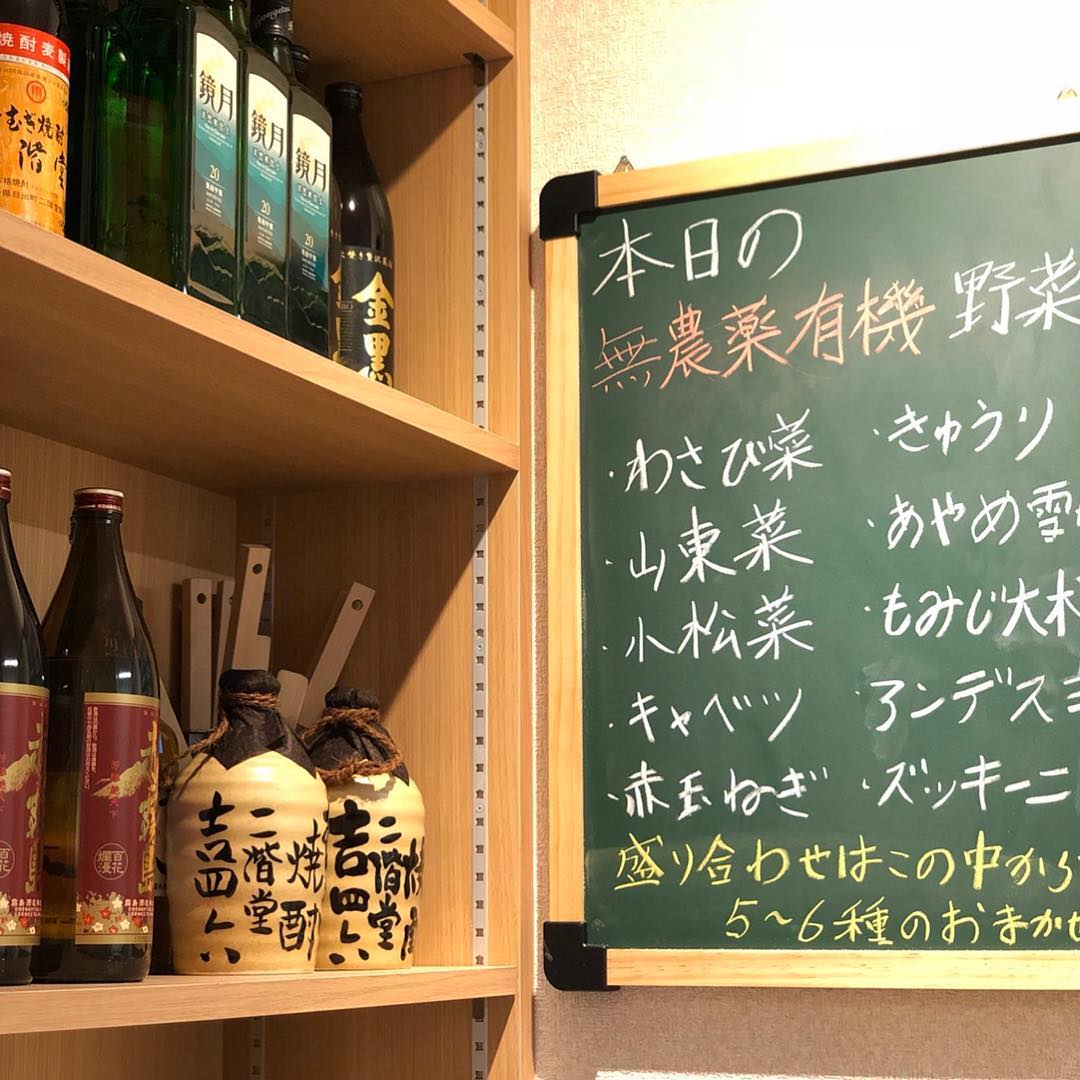 焼酎麦製
むぎ焼酎
階堂
鏡月
20
鏡月
20
鏡月
20
金黒
百花
爛漫
焼酎
二階堂
吉四六
二階堂
吉四六
本日の
無農薬有機 野菜
・わさび菜
・山東菜
・小松菜
・キャベツ
・赤玉ねぎ
・きゅうり
・あやめ雪
・もみじ大
・アンデス
・ズッキーニ
盛り合わせはこの中から
5〜6種のおまかせ